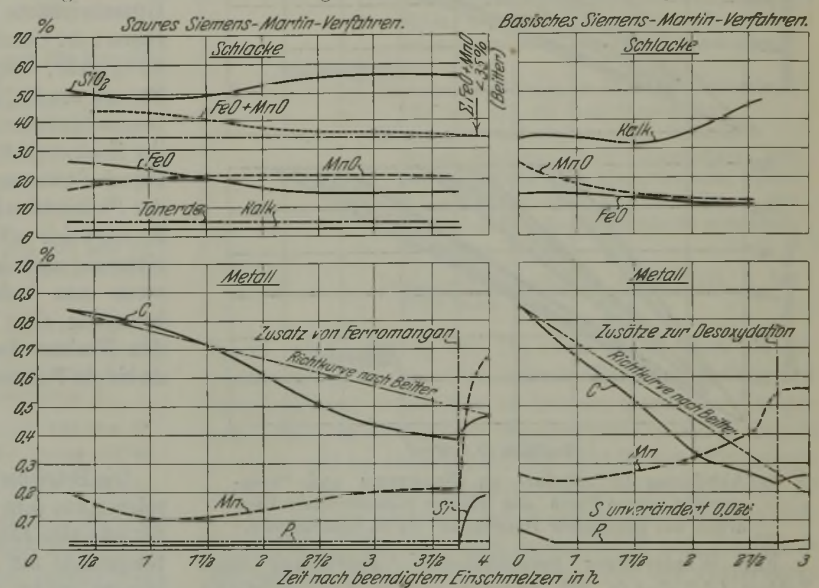 %
Saures Siemens-Martin-Verfahren.
Basisches Siemens-Martin-Verfahren.
70
60
50
40
30
20
10
0
Schlacke
SiO2
FeO+MnO
Σ FeO+MnO
<35%
(Beitter)
FeO
MnO
Tonerde
Kalk
Schlacke
Kalk
MnO
FeO
%
1,0
0,9
0,8
0,7
0,6
0,5
0,4
0,3
0,2
0,1
Metall
C
Zusatz von Ferromangan
Richtkurve nach Beitter
Mn
Si
P
Metall
Zusätze zur Desoxydation
Richtkurve nach Beitter
C
Mn
S unverändert 0,026
P
0 1/2 1 1 1/2 2 2 1/2 3 3 1/2 4
0 1 1 1/2 2 2 1/2 3
Zeit nach beendigtem Einschmelzen in h